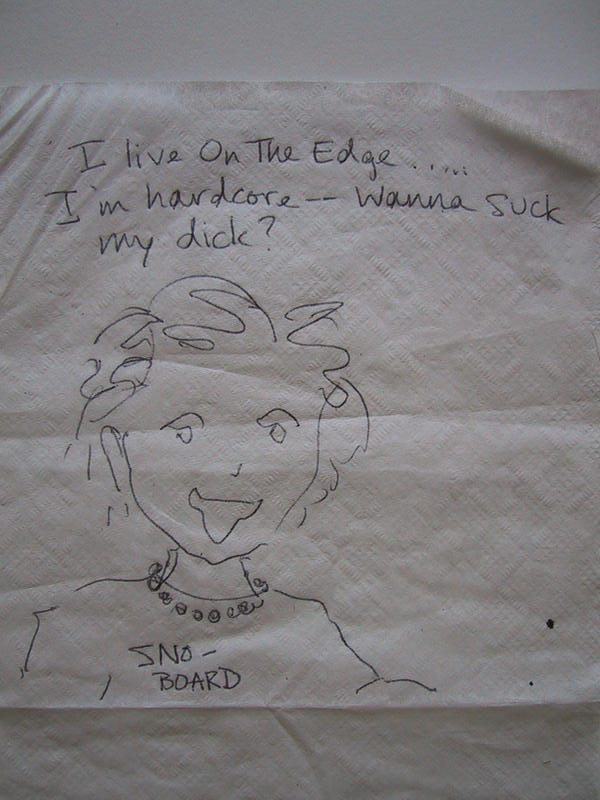 I live On The Edge .....
I'm hardcore -- Wanna suck
my dick?
SNO-
BOARD